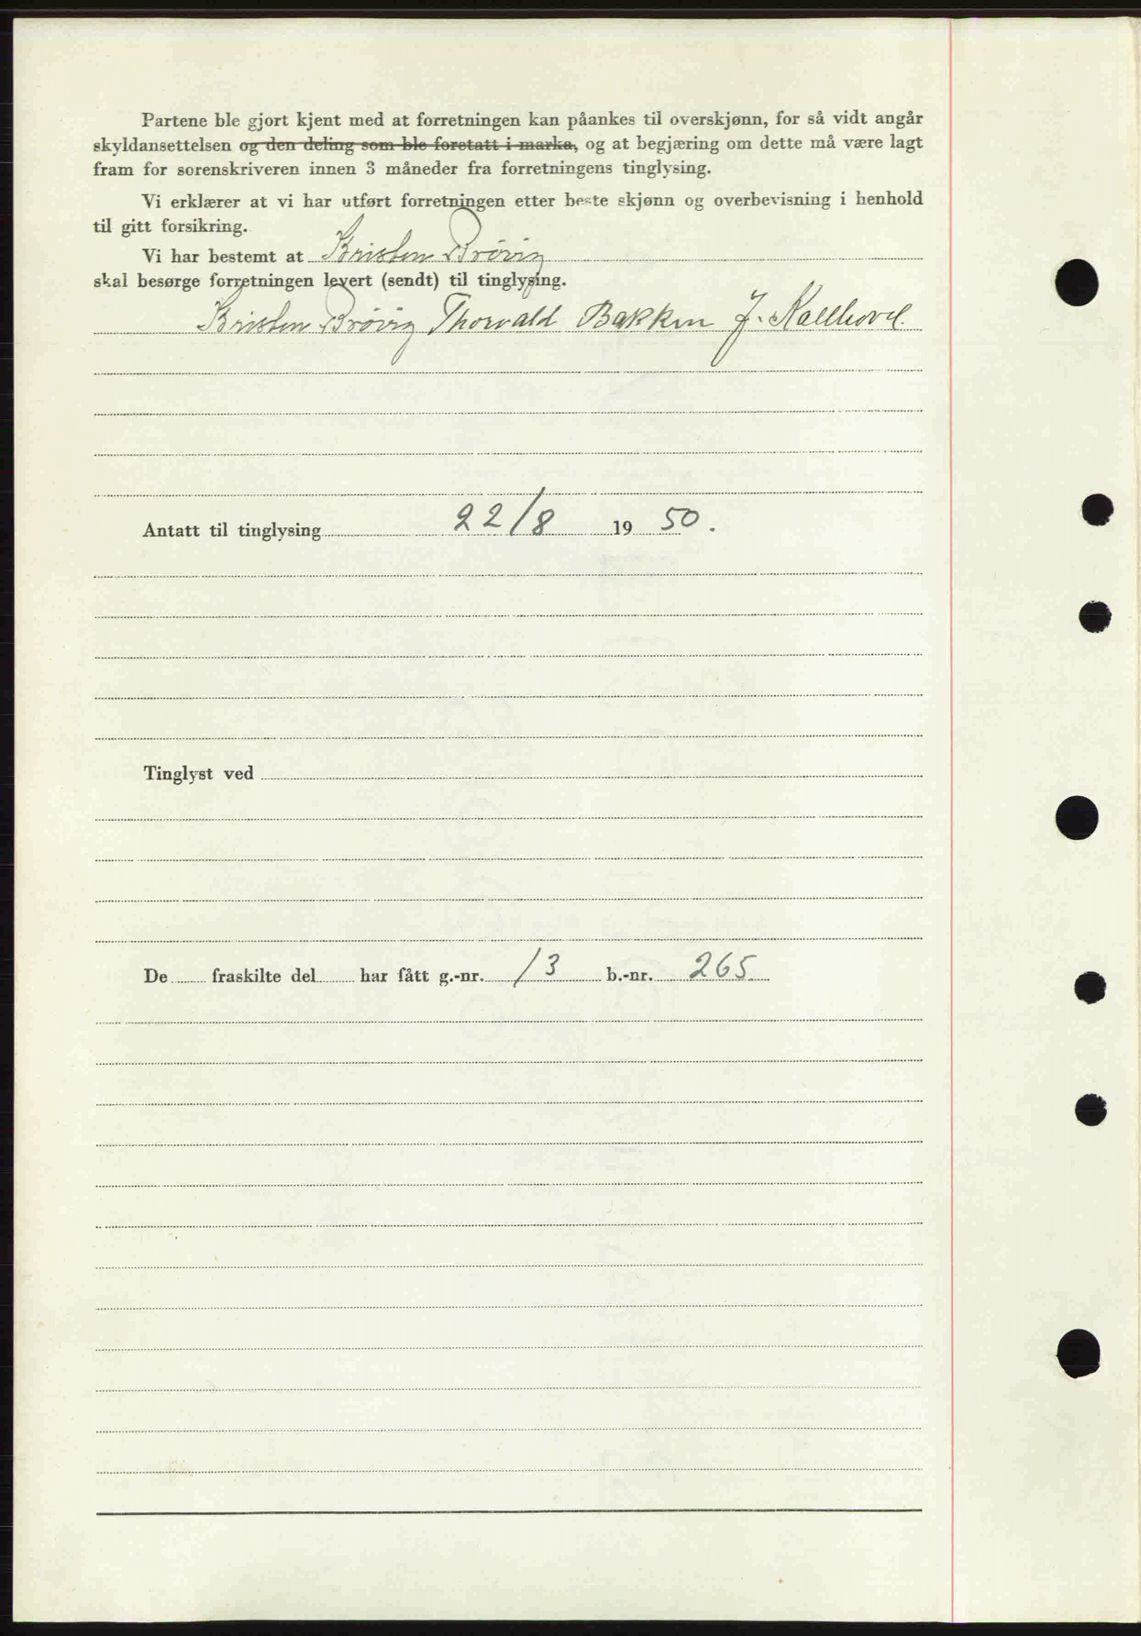 Partene ble gjort kjent med at forretningen kan påankes til overskjønn, for så vidt angår
skyldansettelsen og den deling som ble foretatt i marka, og at begjæring om dette må være lagt
fram for sorenskriveren innen 3 måneder fra forretningens tinglysing.
Vi erklærer at vi har utført forretningen etter beste skjønn og overbevisning i henhold
til gitt forsikring.
Vi har bestemt at Kristen Brøvig
skal besørge forretningen levert (sendt) til tinglysing.
Kristen Brøvig Thorvald Bakken J. Kallhovd.
Antatt til tinglysing 22/8 1950.
Tinglyst ved
De fraskilte del har fått g.-nr. 13 b.-nr. 265